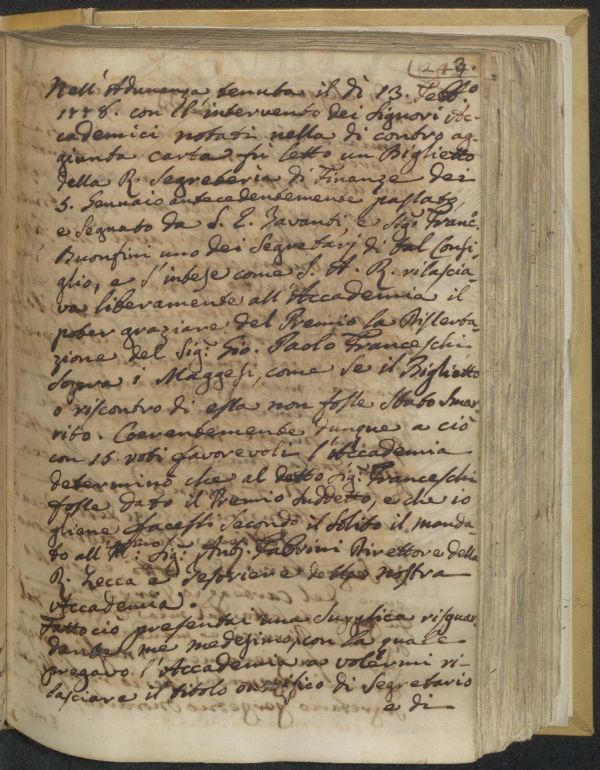 243.
Nell'Adunanza tenuta il dì 13. Febb.o
1778. con ll'intervento dei Signori Ac-
cademici notati nella di contro ag-
giunta carta fu letto un Biglietto
della R. Segreteria di Finanze dei
5. Gennaio antecedentemente passato,
e segnato da S. E. Tavanti, e Sig.r Franc.o
Buonfini uno dei Segretarj di tal Consi-
glio, e s'intese come S. A. R. rilascia-
va liberamente all'Accademia il
poter graziare del Premio la Disserta-
zione del Sig.r Gio. Paolo Franceschi
sopra i Maggesi, come se il Biglietto
o riscontro di essa non fosse stato smar-
rito. Coerentemente dunque a ciò
con 15. voti favorevoli l'Accademia
determinò che al detto Sig.r Franceschi
fosse dato il Premio suddetto, e che io
gliene facessi secondo il solito il manda-
to all'Ill.mo Sig. Ant.o Fabrini Direttore della
R. Zecca e Tesoriere della nostra
Accademia.
Fatto ciò presentai una supplica risguar-
dante me medesimo, con la quale
pregavo l'Accademia a volermi ri-
lasciare il titolo onorifico di Segretario
e di